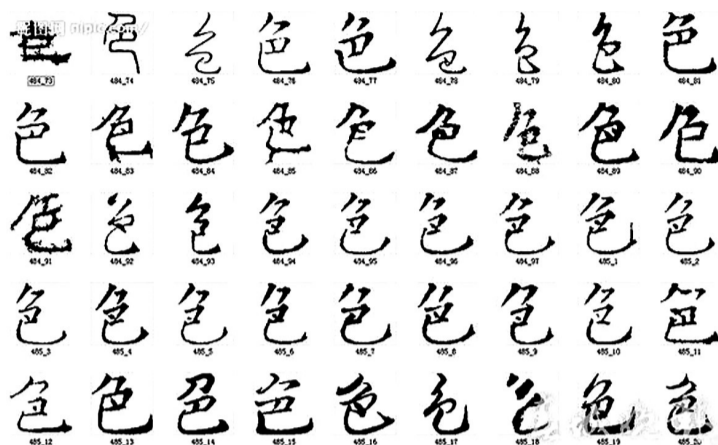 昵图网 nipic.com/
色 色 色 色 色 色 色 色 色
484_73 484_74 484_75 484_76 484_77 484_78 484_79 484_80 484_81
色 色 色 色 色 色 色 色 色
484_82 484_83 484_84 484_85 484_86 484_87 484_88 484_89 484_90
色 色 色 色 色 色 色 色 色
484_91 484_92 484_93 484_94 484_95 484_96 484_97 485_1 485_2
色 色 色 色 色 色 色 色 色
485_3 485_4 485_5 485_6 485_7 485_8 485_9 485_10 485_11
色 色 色 色 色 色 色 色 色
485_12 485_13 485_14 485_15 485_16 485_17 485_18 485_19 485_20